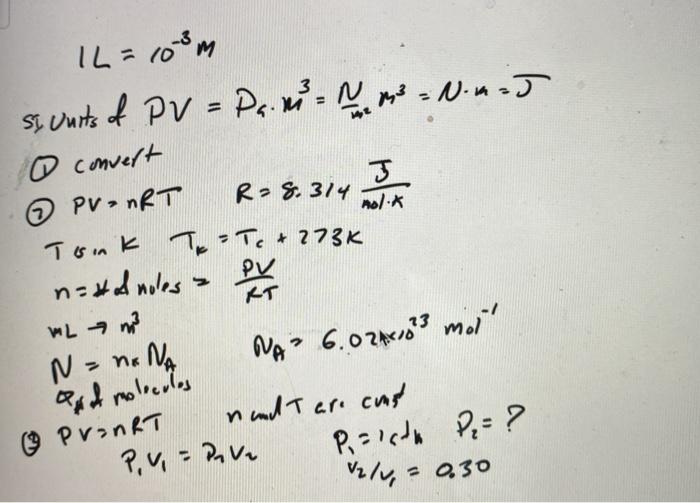 1L = 10⁻³ m
SI Units of PV = Pa·m³ = N/m² m³ = N·m = J
① convert
② PV = nRT R = 8.314 J/mol·K
T is in K T_K = T_c + 273K
n = # of moles = PV/RT
mL → m³
N = n × N_A N_A = 6.02 × 10²³ mol⁻¹
# of molecules
③ PV = nRT n and T are const
P₁V₁ = P₂V₂ P₁ = 1 atm P₂ = ?
V₂/V₁ = 0.30